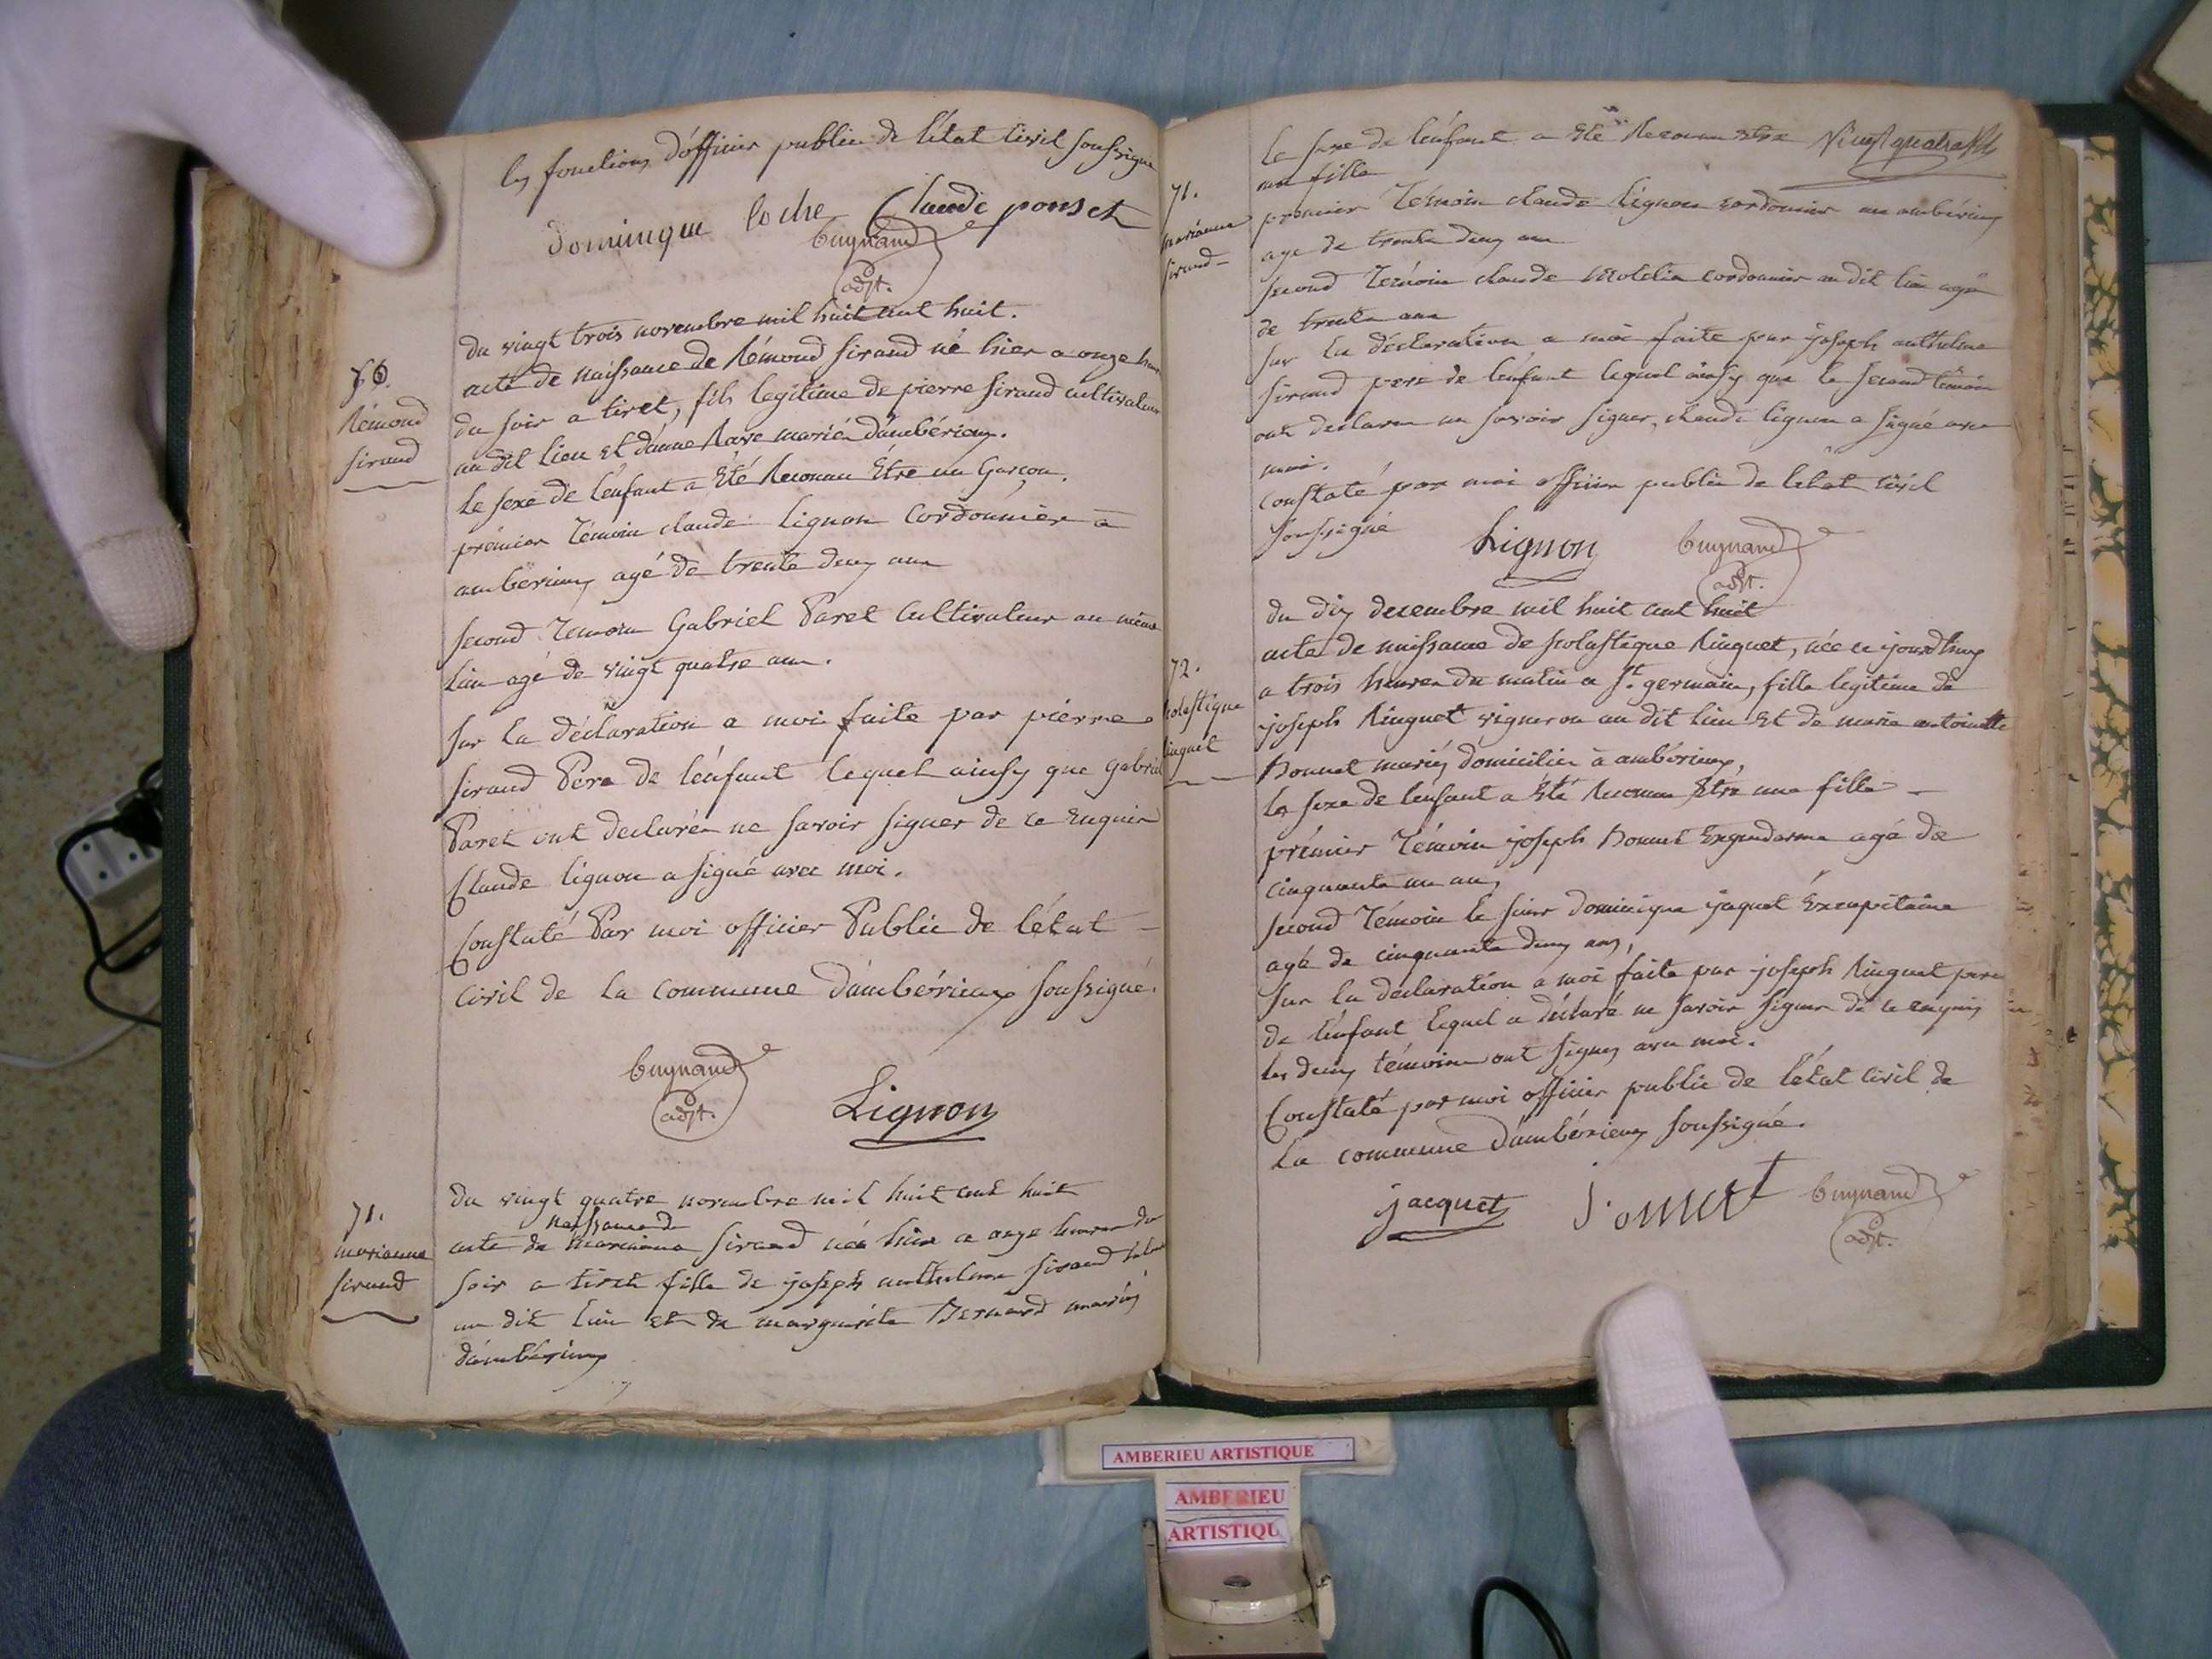 les fonctions d'officier public de l'état Civil soussigné
dominique loche Claude ponset
bugnand
adjt.
du vingt trois novembre mil huit cent huit.
70.
Rémond
sirand
acte de naissance de Rémond sirand né hier a onze heures
du soir a tiret, fils legitime de pierre sirand cultivateur
au dit lieu et d'anne Rave mariés d'ambérieux.
Le sexe de l'enfant a Eté Reconnu Etre un Garçon.
prémier Témoin claude Lignon Cordonnier a
amberieux agé de trente deux ans
second Temoin Gabriel Paret Cultivateur au même
Lieu agé de vingt quatre ans.
sur La déclaration a moi faite par piérre
sirand Pére de l'énfant lequel ainsy que gabriel
Paret ont declarés ne savoir signer de ce Enquis
Claude lignon a signé avec moi.
Constaté Par moi officier Public de l'état
Civil de La commune d'ambérieux soussigné.
bugnand
adjt.
Lignon
71.
marianne
sirand
du vingt quatre novembre mil huit cent huit
naissance de
acte de marianne sirand née hier a onze heures du
soir a tiret fille de joseph anthelme sirand
au dit lieu et de marguerite Bernard mariés
d'ambérieux
Le sexe de l'enfant a Eté Reconnu etre Vingt quatre
une fille
71.
marianne
sirand
premier Témoin claude lignon cordonnier au ambérieux
age de trente deux ans
second Temoin claude cordonnier au dit lieu agé
de trente ans
sur La déclaration a moi faite par joseph anthelme
sirand pere de l'enfant lequel ainsy que le second témoin
ont declaré ne savoir signer, claude lignon a signé avec
moi.
constaté par moi officier public de l'etat civil
soussigné
Lignon bugnand
adjt.
du dix decembre mil huit cent huit
72.
scolastique
Ringuet
acte de naissance de scolastique Ringuet, née ce jourd'huy
a trois heures du matin a St. germain, fille legitime de
joseph Ringuet vigneron au dit lieu Et de marie antoinette
Bonnet mariés domiciliés à ambérieux,
le sexe de l'enfant a Eté Reconnu Etre une fille
prémier Témoin joseph Bonnet Exgendarme agé de
cinquante un ans,
second Témoin le sieur dominique jaquet Excapitaine
agé de cinquante deux ans,
sur la déclaration a moi faite par joseph Ringuet pere
de l'énfant lequel a déclaré ne savoir signer de ce enquis
les deux témoins ont signés avec moi.
Constaté par moi officier public de l'état Civil de
La commune d'ambérieux soussigné.
jacquet Bonnet bugnand
adjt.
AMBERIEU ARTISTIQUE
AMBERIEU
ARTISTIQU